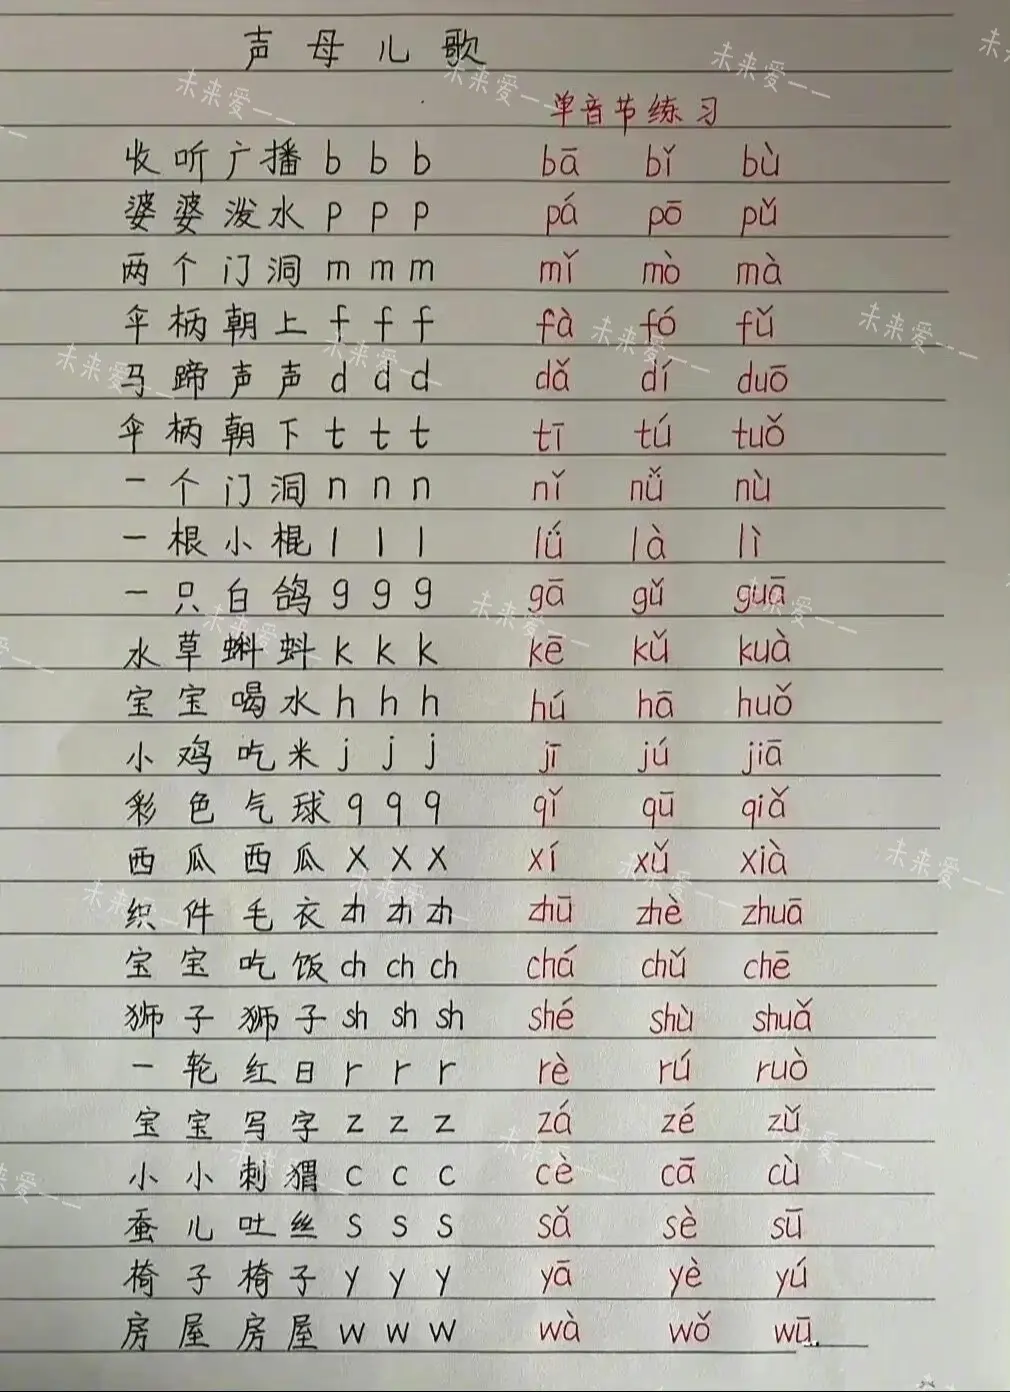 声母儿歌
单音节练习
收听广播 b b b bā bǐ bù
婆婆泼水 p p p pá pō pǔ
两个门洞 m m m mǐ mò mà
伞柄朝上 f f f fà fó fǔ
马蹄声声 d d d dǎ dí duō
伞柄朝下 t t t tī tú tuǒ
一个门洞 n n n nǐ nǚ nù
一根小棍 l l l lǘ là lì
一只白鸽 g g g gā gǔ guā
水草蝌蚪 k k k kē kǔ kuà
宝宝喝水 h h h hú hā huǒ
小鸡吃米 j j j jī jú jiā
彩色气球 q q q qǐ qū qiǎ
西瓜西瓜 x x x xí xǔ xià
织件毛衣 zh zh zh zhū zhè zhuā
宝宝吃饭 ch ch ch chá chǔ chē
狮子狮子 sh sh sh shé shù shuǎ
一轮红日 r r r rè rú ruò
宝宝写字 z z z zá zé zǔ
小小刺猬 c c c cè cā cù
蚕儿吐丝 s s s sǎ sè sū
椅子椅子 y y y yā yè yú
房屋房屋 w w w wà wǒ wū
未来爱一一